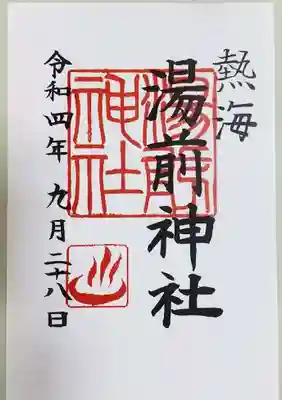 熱海
湯前神社
湯前神社
令和四年 九月二十八日